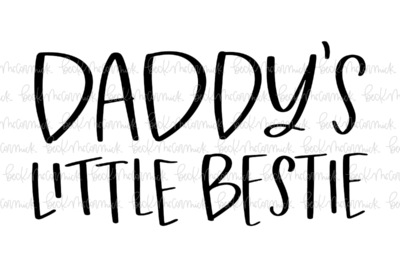 DADDY'S
LITTLE BESTIE